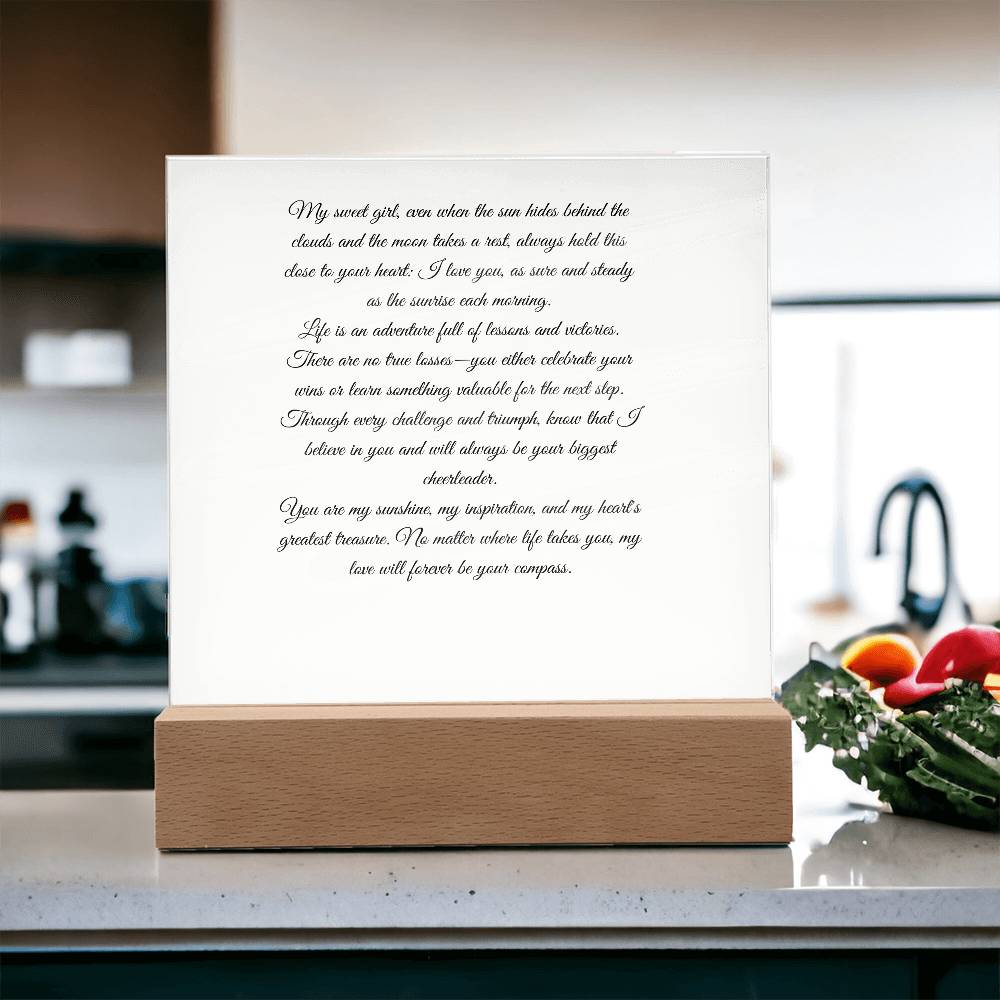 My sweet girl, even when the sun hides behind the
clouds and the moon takes a rest, always hold this
close to your heart: I love you, as sure and steady
as the sunrise each morning.
Life is an adventure full of lessons and victories.
There are no true losses—you either celebrate your
wins or learn something valuable for the next step.
Through every challenge and triumph, know that I
believe in you and will always be your biggest
cheerleader.
You are my sunshine, my inspiration, and my heart's
greatest treasure. No matter where life takes you, my
love will forever be your compass.